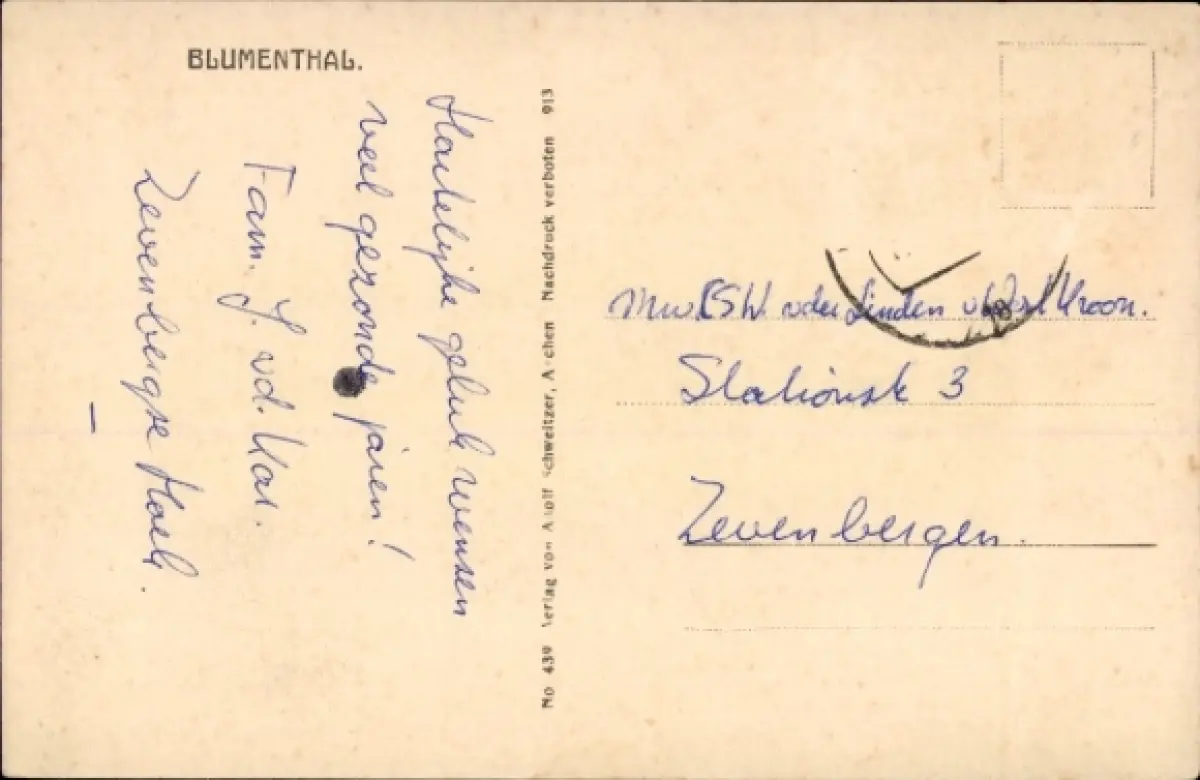 BLUMENTHAL.
Hartelijke gelukwensen
veel gezonde jaren!
Fam. J. vd. Kar.
Zevenbergse Hoek.
No 439 Verlag von Adolf Schweitzer, Aachen Nachdruck verboten 913
v der Linden Kroon.
Stationsstr 3
Zevenbergen.